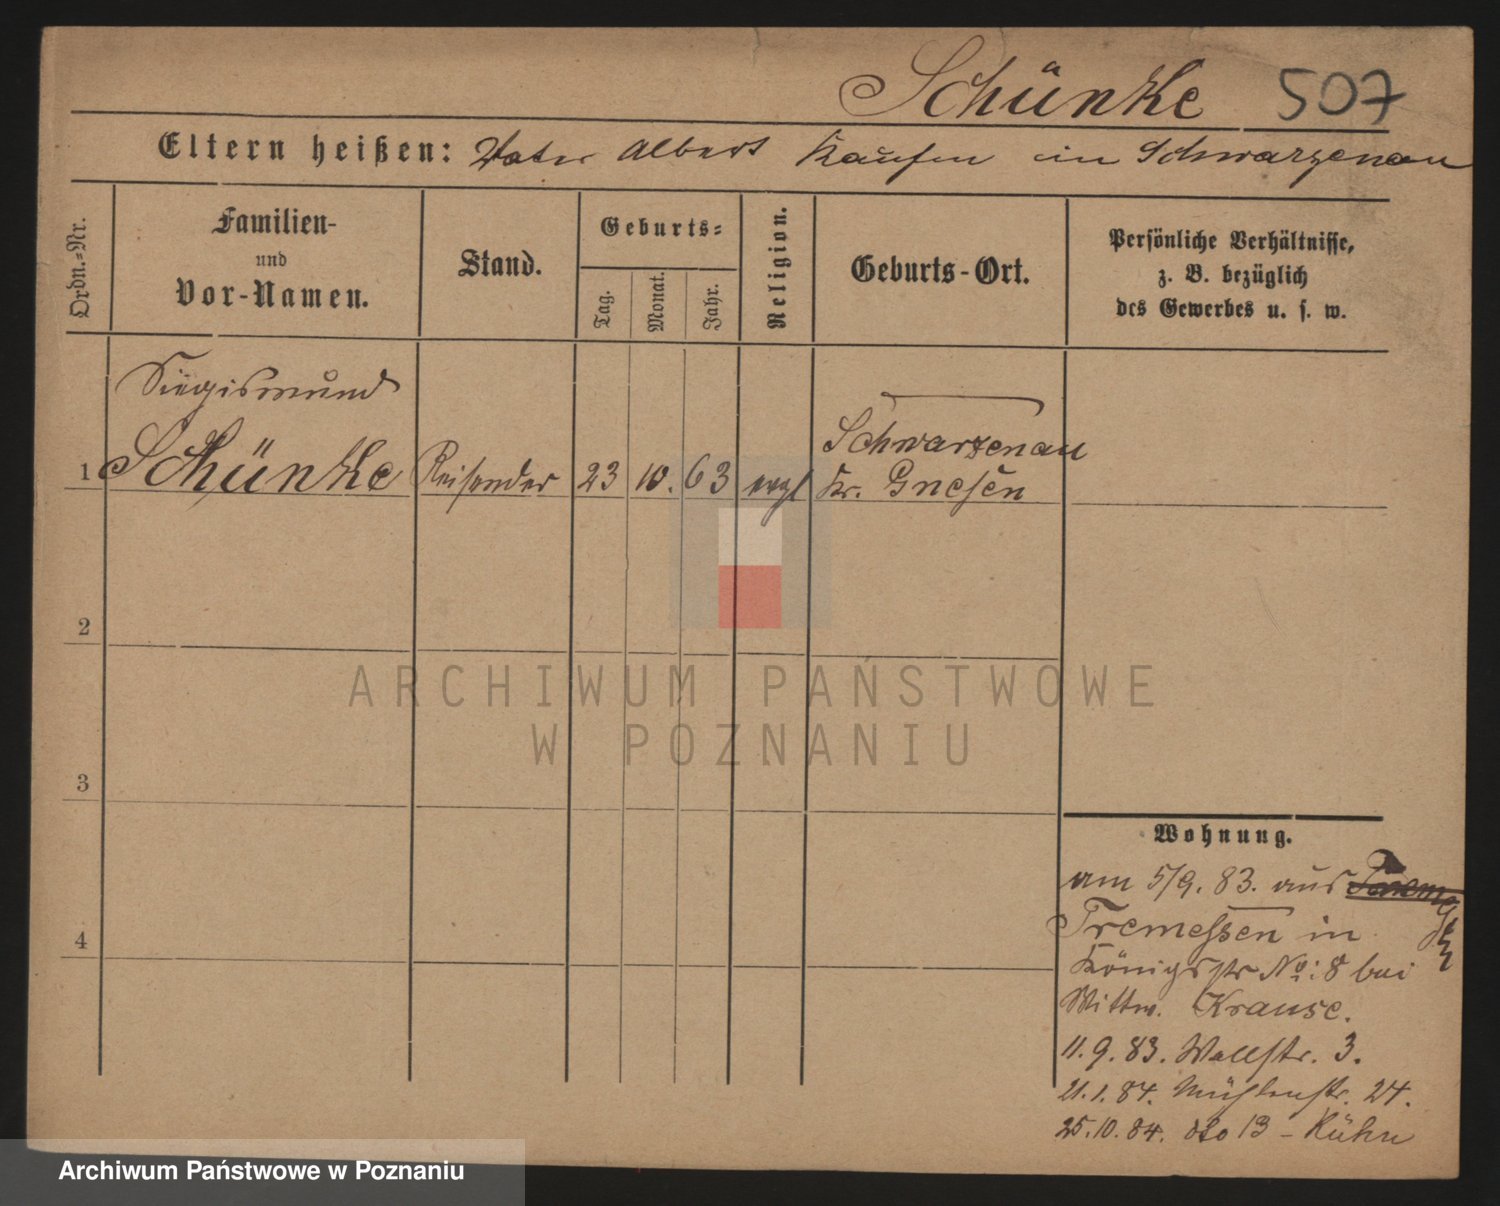 Schünke 507
Eltern heißen: Vater Albert Kaufm in Schwarzenau
Ordn.-Nr.
Familien-
und
Vor-Namen.
Stand.
Geburts-
Tag.
Monat.
Jahr.
Religion.
Geburts-Ort.
Persönliche Verhältnisse,
z. B. bezüglich
des Gewerbes u. s. w.
Siegismund
Schwarzenau
1 Schünke Reisender 23 10. 63 evgl Kr. Gnesen
2
3
4
ARCHIWUM PAŃSTWOWE
W POZNANIU
Wohnung.
am 5/9. 83. aus
Tremessen in
Königsstr No: 8 bei
Wittw. Krause.
11. 9. 83. Wallstr. 3.
21. 1. 84. Mühlenstr. 24.
25. 10. 84. dto 13 - Kühn
Archiwum Państwowe w Poznaniu